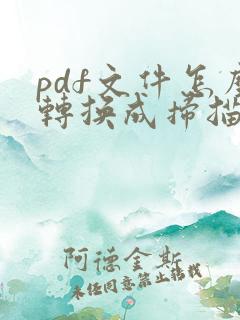 pdf文件怎麼
轉換成掃描
阿德金斯
未經同意禁止轉載